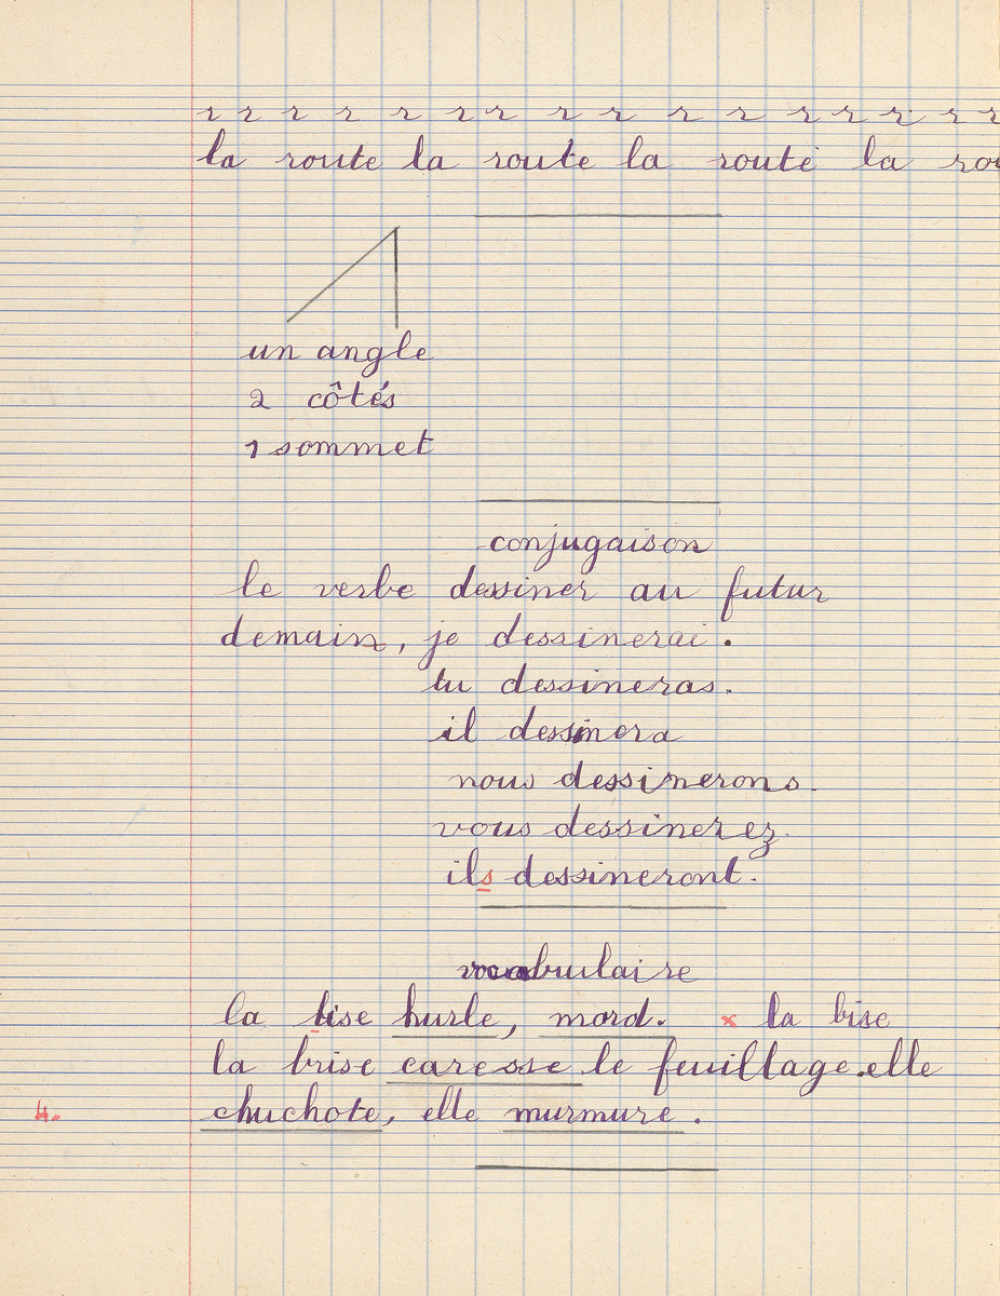 r r r r r r r r r r r r r r r r r
la route la route la route la rou
un angle
2 côtés
1 sommet
conjugaison
le verbe dessiner au futur
demain, je dessinerai.
tu dessineras.
il dessinera
nous dessinerons.
vous dessinerez.
ils dessineront.
vocabulaire
la bise hurle, mord. x la bise
la brise caresse le feuillage. elle
4. chuchote, elle murmure.